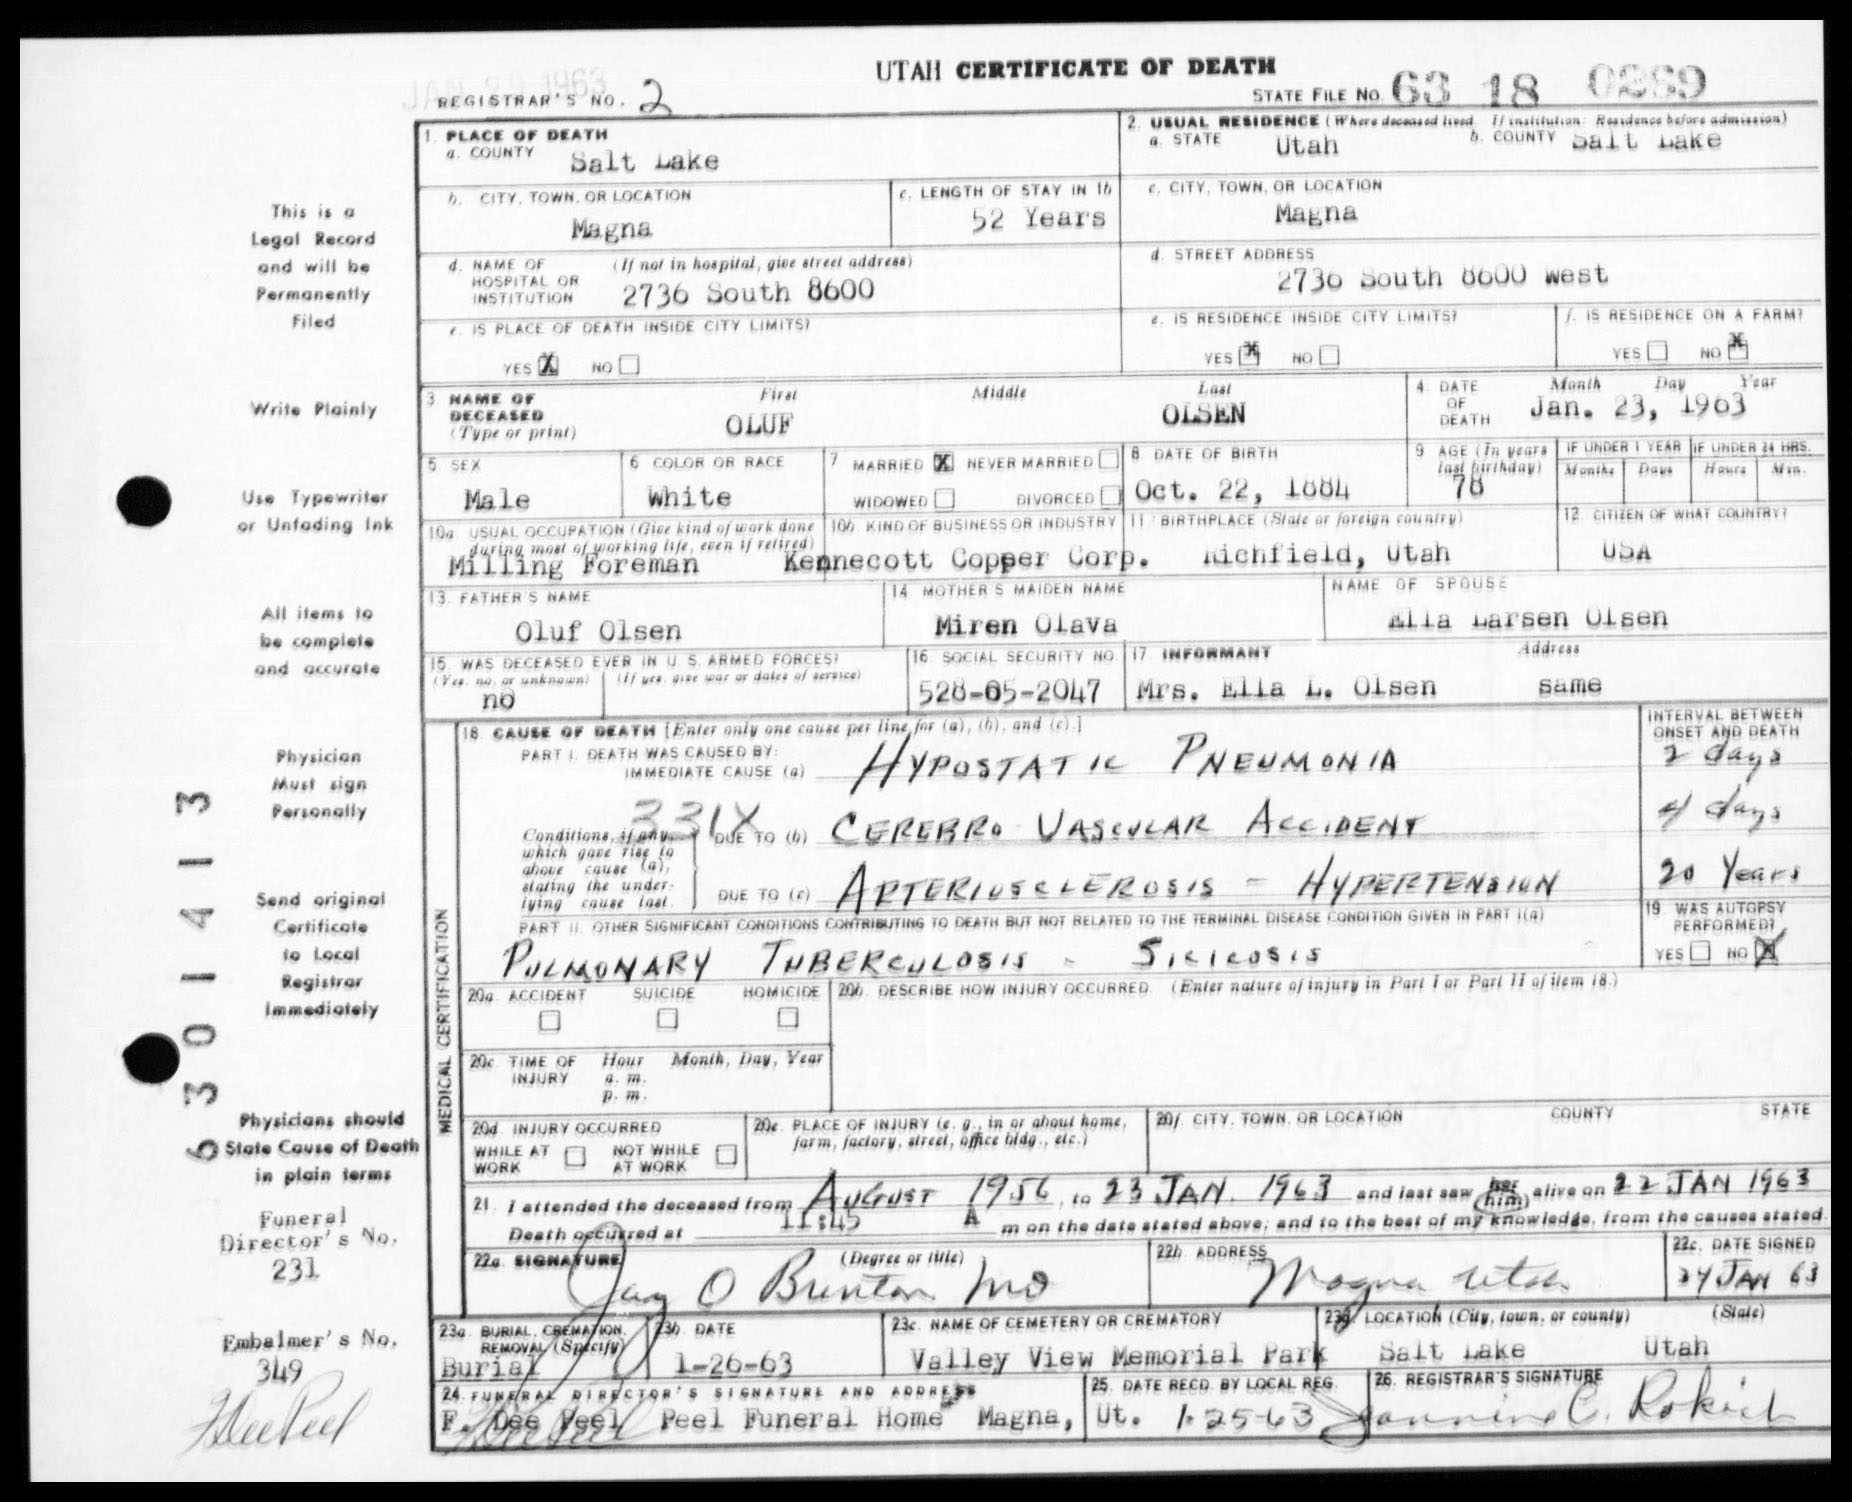 UTAH CERTIFICATE OF DEATH
JAN 29 1963
REGISTRAR'S NO. 2
STATE FILE NO. 63 18 0269
This is a
Legal Record
and will be
Permanently
Filed
Write Plainly
Use Typewriter
or Unfading Ink
All items to
be complete
and accurate
Physician
Must sign
Personally
Send original
Certificate
to Local
Registrar
Immediately
Physicians should
State Cause of Death
in plain terms
Funeral
Director's No.
231
Embalmer's No.
349
F Dee Peel
6 3 0 1 4 1 3
1. PLACE OF DEATH
a. COUNTY Salt Lake
2. USUAL RESIDENCE (Where deceased lived. If institution: Residence before admission)
a. STATE Utah b. COUNTY Salt Lake
b. CITY, TOWN, OR LOCATION Magna
c. LENGTH OF STAY IN 1b 52 Years
c. CITY, TOWN, OR LOCATION Magna
d. NAME OF HOSPITAL OR INSTITUTION (If not in hospital, give street address) 2736 South 8600
d. STREET ADDRESS 2736 South 8600 West
e. IS PLACE OF DEATH INSIDE CITY LIMITS?
YES X NO
e. IS RESIDENCE INSIDE CITY LIMITS?
YES X NO
f. IS RESIDENCE ON A FARM?
YES NO X
3 NAME OF DECEASED (Type or print) First Middle Last
OLUF OLSEN
4. DATE OF DEATH Month Day Year
Jan. 23, 1963
5 SEX Male
6 COLOR OR RACE White
7 MARRIED X NEVER MARRIED
WIDOWED DIVORCED
8 DATE OF BIRTH Oct. 22, 1884
9 AGE (In years last birthday) 78
IF UNDER 1 YEAR Months Days
IF UNDER 24 HRS. Hours Min.
10a. USUAL OCCUPATION (Give kind of work done during most of working life, even if retired)
Milling Foreman
10b. KIND OF BUSINESS OR INDUSTRY
Kennecott Copper Corp.
11 BIRTHPLACE (State or foreign country)
Richfield, Utah
12. CITIZEN OF WHAT COUNTRY?
USA
13. FATHER'S NAME
Oluf Olsen
14 MOTHER'S MAIDEN NAME
Miren Olava
NAME OF SPOUSE
Ella Larsen Olsen
15. WAS DECEASED EVER IN U. S. ARMED FORCES?
(Yes, no, or unknown) (If yes, give war or dates of service)
no
16 SOCIAL SECURITY NO.
528-05-2047
17 INFORMANT Address
Mrs. Ella L. Olsen same
18. CAUSE OF DEATH [Enter only one cause per line for (a), (b), and (c).]
INTERVAL BETWEEN ONSET AND DEATH
PART I. DEATH WAS CAUSED BY:
IMMEDIATE CAUSE (a) HYPOSTATIC PNEUMONIA 2 days
331X
Conditions, if any, which gave rise to above cause (a), stating the underlying cause last.
DUE TO (b) CEREBRO VASCULAR ACCIDENT 4 days
DUE TO (c) ARTERIOSCLEROSIS - HYPERTENSION 20 Years
PART II. OTHER SIGNIFICANT CONDITIONS CONTRIBUTING TO DEATH BUT NOT RELATED TO THE TERMINAL DISEASE CONDITION GIVEN IN PART I(a)
PULMONARY TUBERCULOSIS - SILICOSIS
19. WAS AUTOPSY PERFORMED?
YES NO X
MEDICAL CERTIFICATION
20a. ACCIDENT SUICIDE HOMICIDE
20b. DESCRIBE HOW INJURY OCCURRED. (Enter nature of injury in Part I or Part II of item 18.)
20c. TIME OF INJURY Hour Month, Day, Year
a. m.
p. m.
20d INJURY OCCURRED
WHILE AT WORK NOT WHILE AT WORK
20e. PLACE OF INJURY (e. g., in or about home, farm, factory, street, office bldg., etc.)
20f. CITY, TOWN, OR LOCATION COUNTY STATE
21. I attended the deceased from AUGUST 1956, to 23 JAN. 1963 and last saw her him alive on 22 JAN 1963
Death occurred at 11:45 A m on the date stated above; and to the best of my knowledge, from the causes stated.
22a. SIGNATURE (Degree or title)
Jay O Brinton MD
22b. ADDRESS
Magna Utah
22c. DATE SIGNED
24 JAN 63
23a. BURIAL, CREMATION, REMOVAL (Specify)
Burial
23b DATE
1-26-63
23c. NAME OF CEMETERY OR CREMATORY
Valley View Memorial Park
23d. LOCATION (City, town, or county) (State)
Salt Lake Utah
24. FUNERAL DIRECTOR'S SIGNATURE AND ADDRESS
F. Dee Peel Peel Funeral Home Magna, Ut.
25. DATE RECD. BY LOCAL REG.
1-25-63
26. REGISTRAR'S SIGNATURE
Jeannine C. Rokich